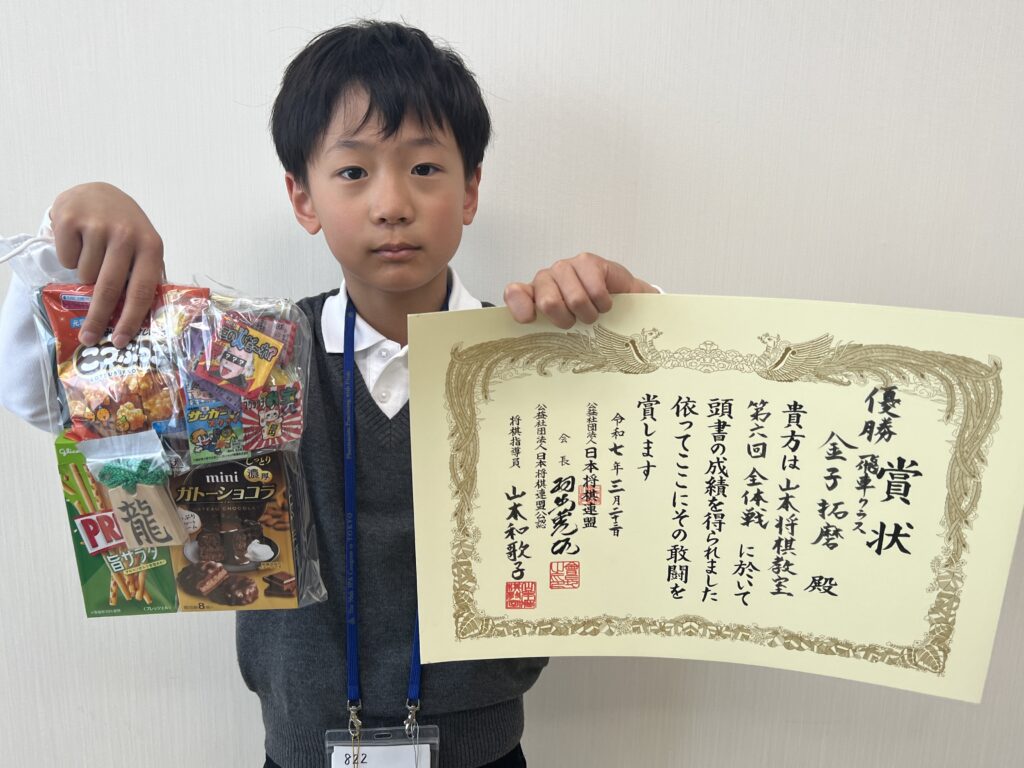 賞状
優勝 飛車クラス
金子拓磨 殿
貴方は山本将棋教室
第六回 全体戦 に於いて
頭書の成績を得られました
依ってここにその敢闘を
賞します
令和七年三月二十日
公益社団法人日本将棋連盟
会長 羽生善治
公益社団法人日本将棋連盟公認
将棋指導員 山本和歌子
mini
しっとり
濃厚
ガトーショコラ
GATEAU CHOCOLAT
8
glico
旨サラダ
PR
龍
サッカー
822